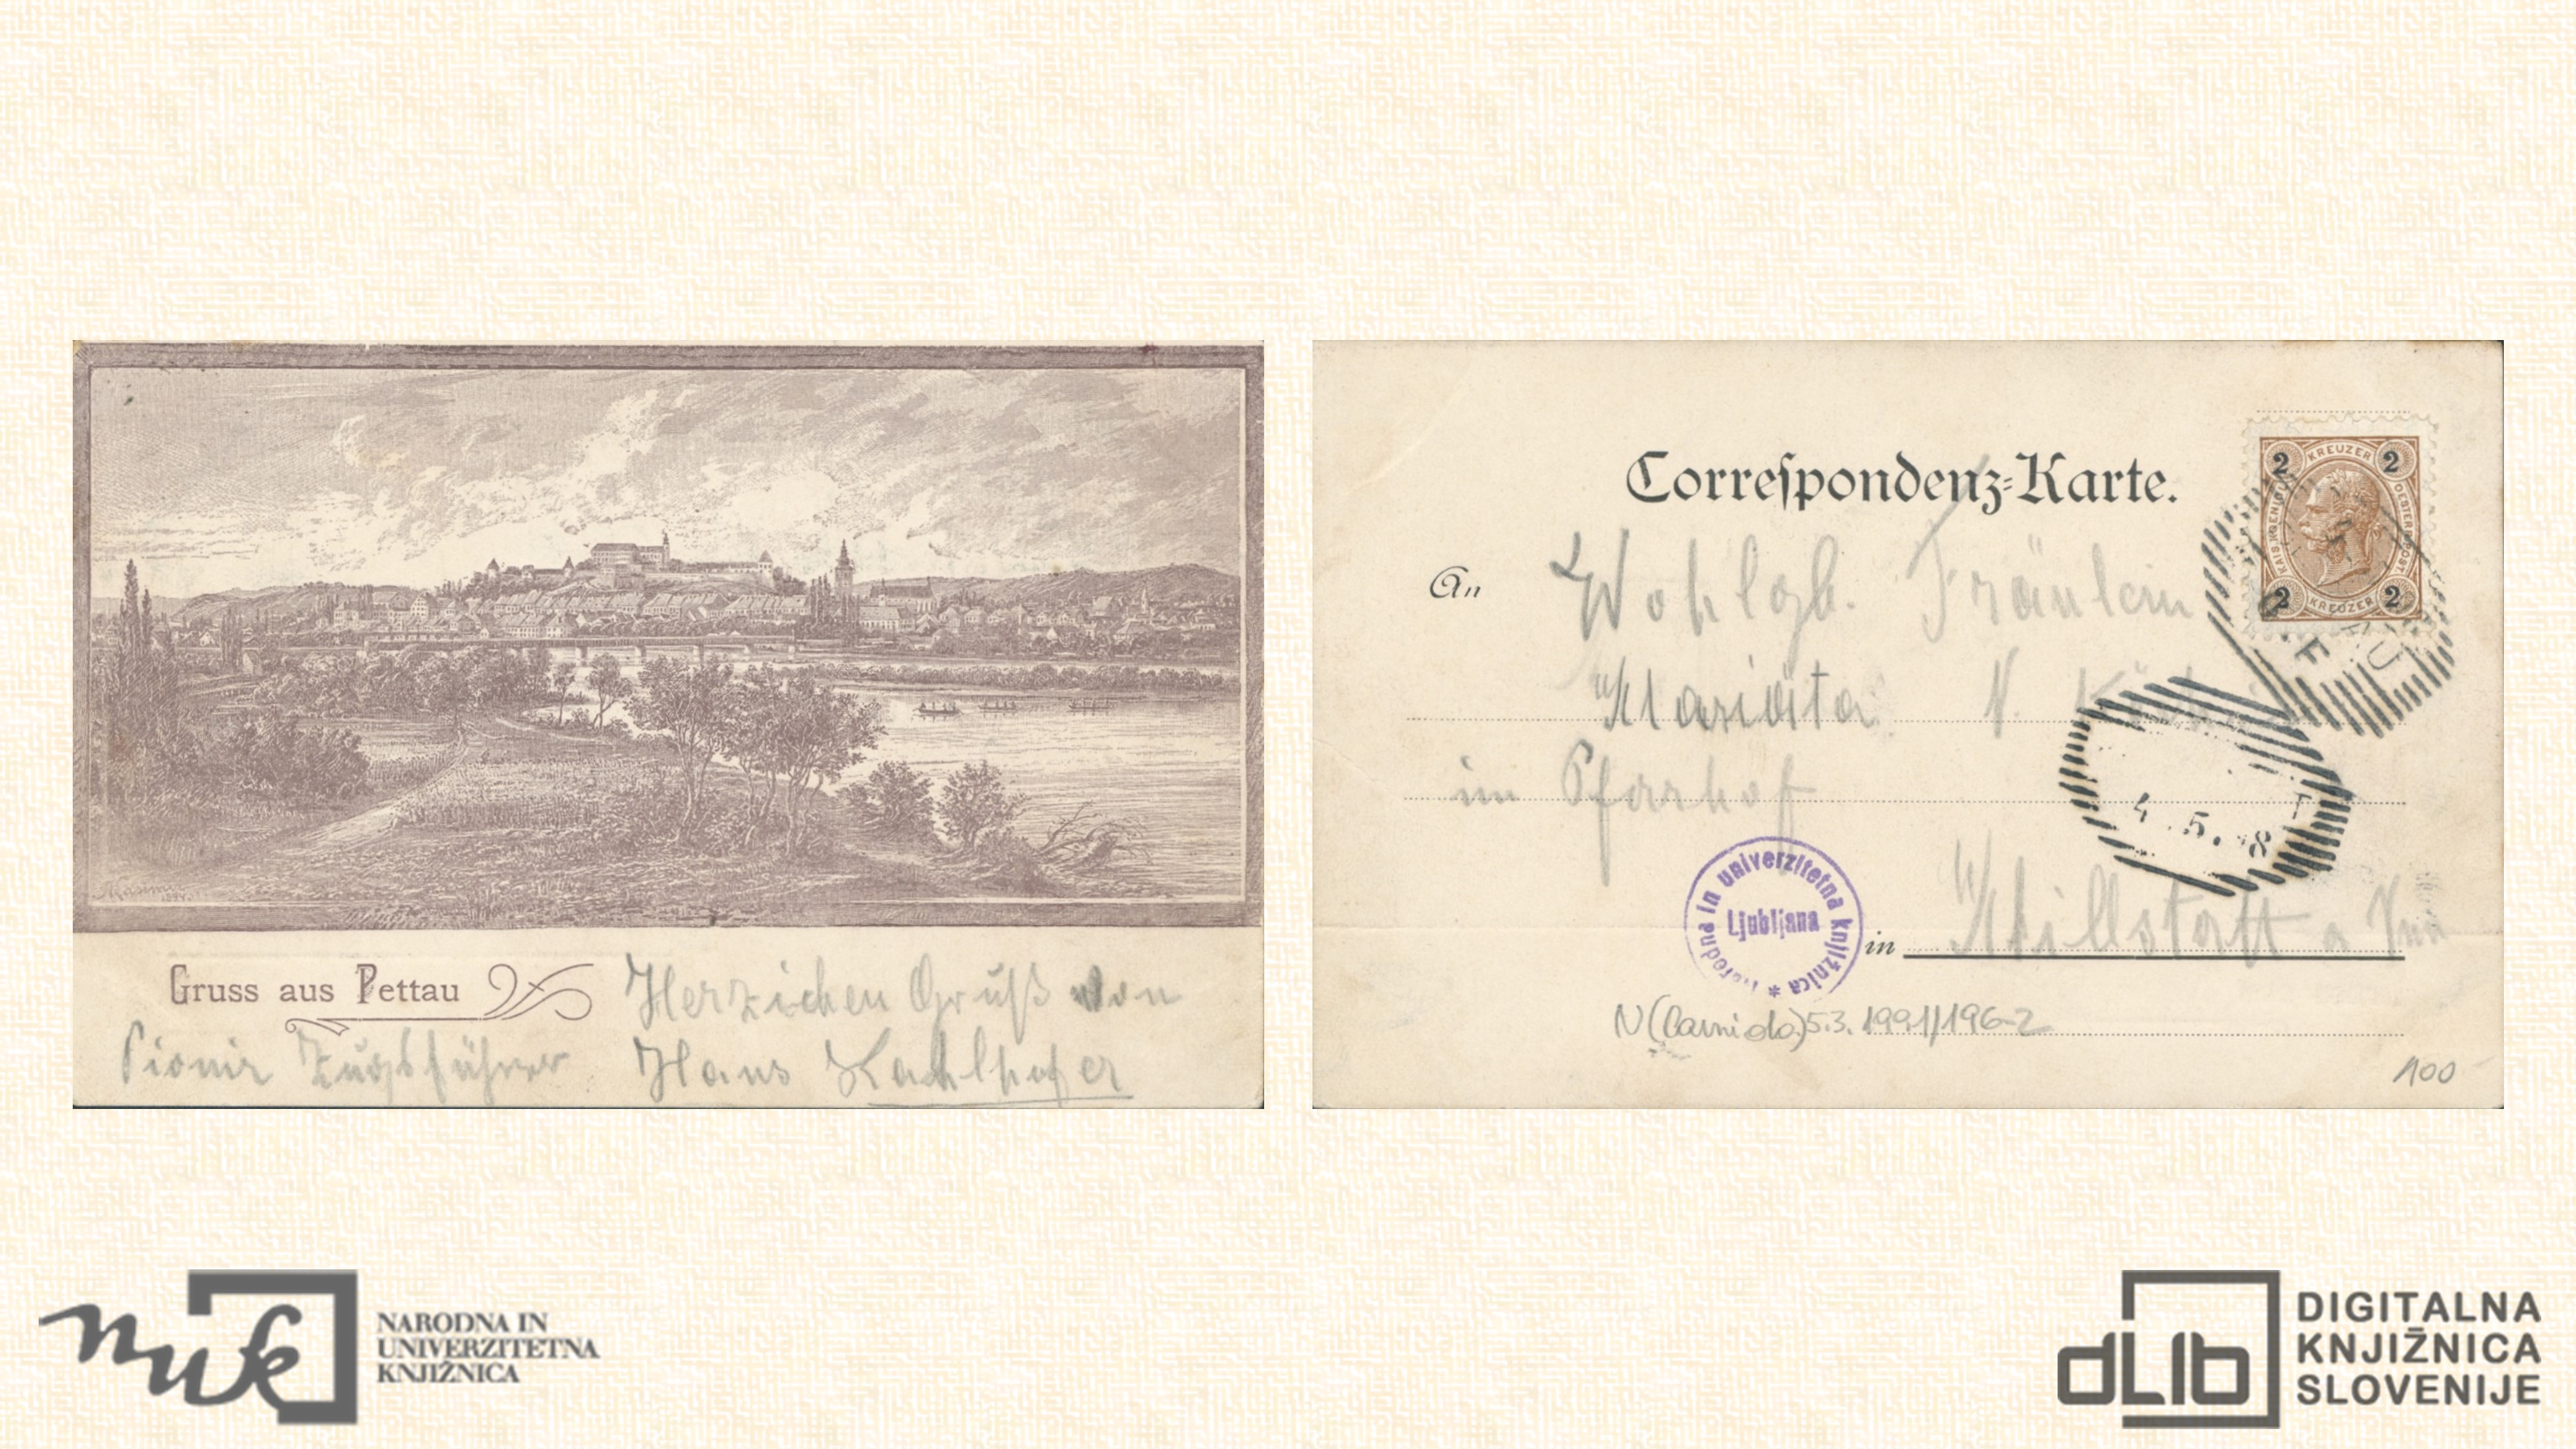 Gruss aus Pettau
Herzichen Gruß von
Pionir Zugsführer Hans
Correspondenz-Karte.
An
Wohlgb. Fräulein
im Pfarrhof
in Millstatt a
2 KREUZER 2
KAIS. KGL.
OESTERR. POST
2 KREUZER 2
4.5.
Narodna in univerzitetna knjižnica *
Ljubljana
N(Carniola)5.3.1991/196-2
100
nuk
NARODNA IN
UNIVERZITETNA
KNJIŽNICA
dLib
DIGITALNA
KNJIŽNICA
SLOVENIJE